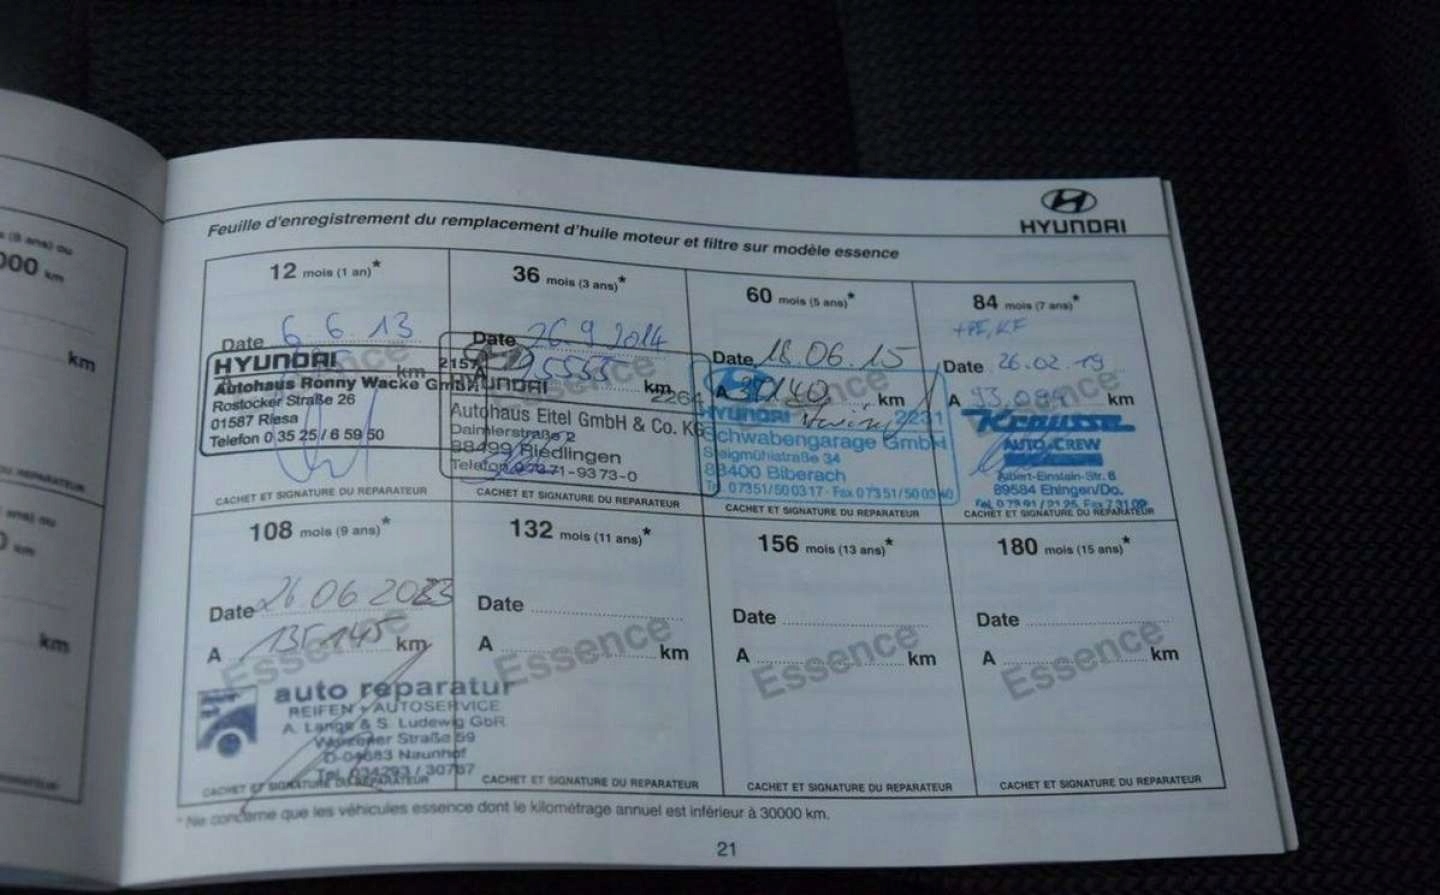 HYUNDAI
Feuille d'enregistrement du remplacement d'huile moteur et filtre sur modèle essence
12 mois (1 an)*
Date 6.6.13
km
Essence
HYUNDAI 2157
Autohaus Ronny Wacke GmbH
Rostocker Straße 26
01587 Riesa
Telefon 0 35 25 / 6 59 50
CACHET ET SIGNATURE DU REPARATEUR
36 mois (3 ans)*
Date 26.9.2014
A km
Essence
HYUNDAI 2264
Autohaus Eitel GmbH & Co. KG
Daimlerstraße 2
88499 Riedlingen
Telefon 07371-93 73-0
CACHET ET SIGNATURE DU REPARATEUR
60 mois (5 ans)*
Date 18.06.15
A 37140 km
Essence
HYUNDAI 2231
Schwabengarage GmbH
Steigmühlstraße 34
88400 Biberach
Tel. 07351/50 03 17 · Fax 0 73 51/50 03 40
CACHET ET SIGNATURE DU REPARATEUR
84 mois (7 ans)*
Date 26.02.19
A 93.094 km
Essence
Krausse
AUTO-CREW
Albert-Einstein-Str. 8
89584 Ehingen/Do.
CACHET ET SIGNATURE DU REPARATEUR
108 mois (9 ans)*
Date 26 06 2023
A 135 145 km
Essence
auto reparatur
REIFEN + AUTOSERVICE
A. Lange & S. Ludewig GbR
Wurzener Straße 59
D-04683 Naunhof
Tel. 034293 / 30767
CACHET ET SIGNATURE DU REPARATEUR
132 mois (11 ans)*
Date
A km
Essence
CACHET ET SIGNATURE DU REPARATEUR
156 mois (13 ans)*
Date
A km
Essence
CACHET ET SIGNATURE DU REPARATEUR
180 mois (15 ans)*
Date
A km
Essence
CACHET ET SIGNATURE DU REPARATEUR
* Ne concerne que les véhicules essence dont le kilométrage annuel est inférieur à 30000 km.
21
(8 ans) ou
000 km
km
ans) ou
km
km